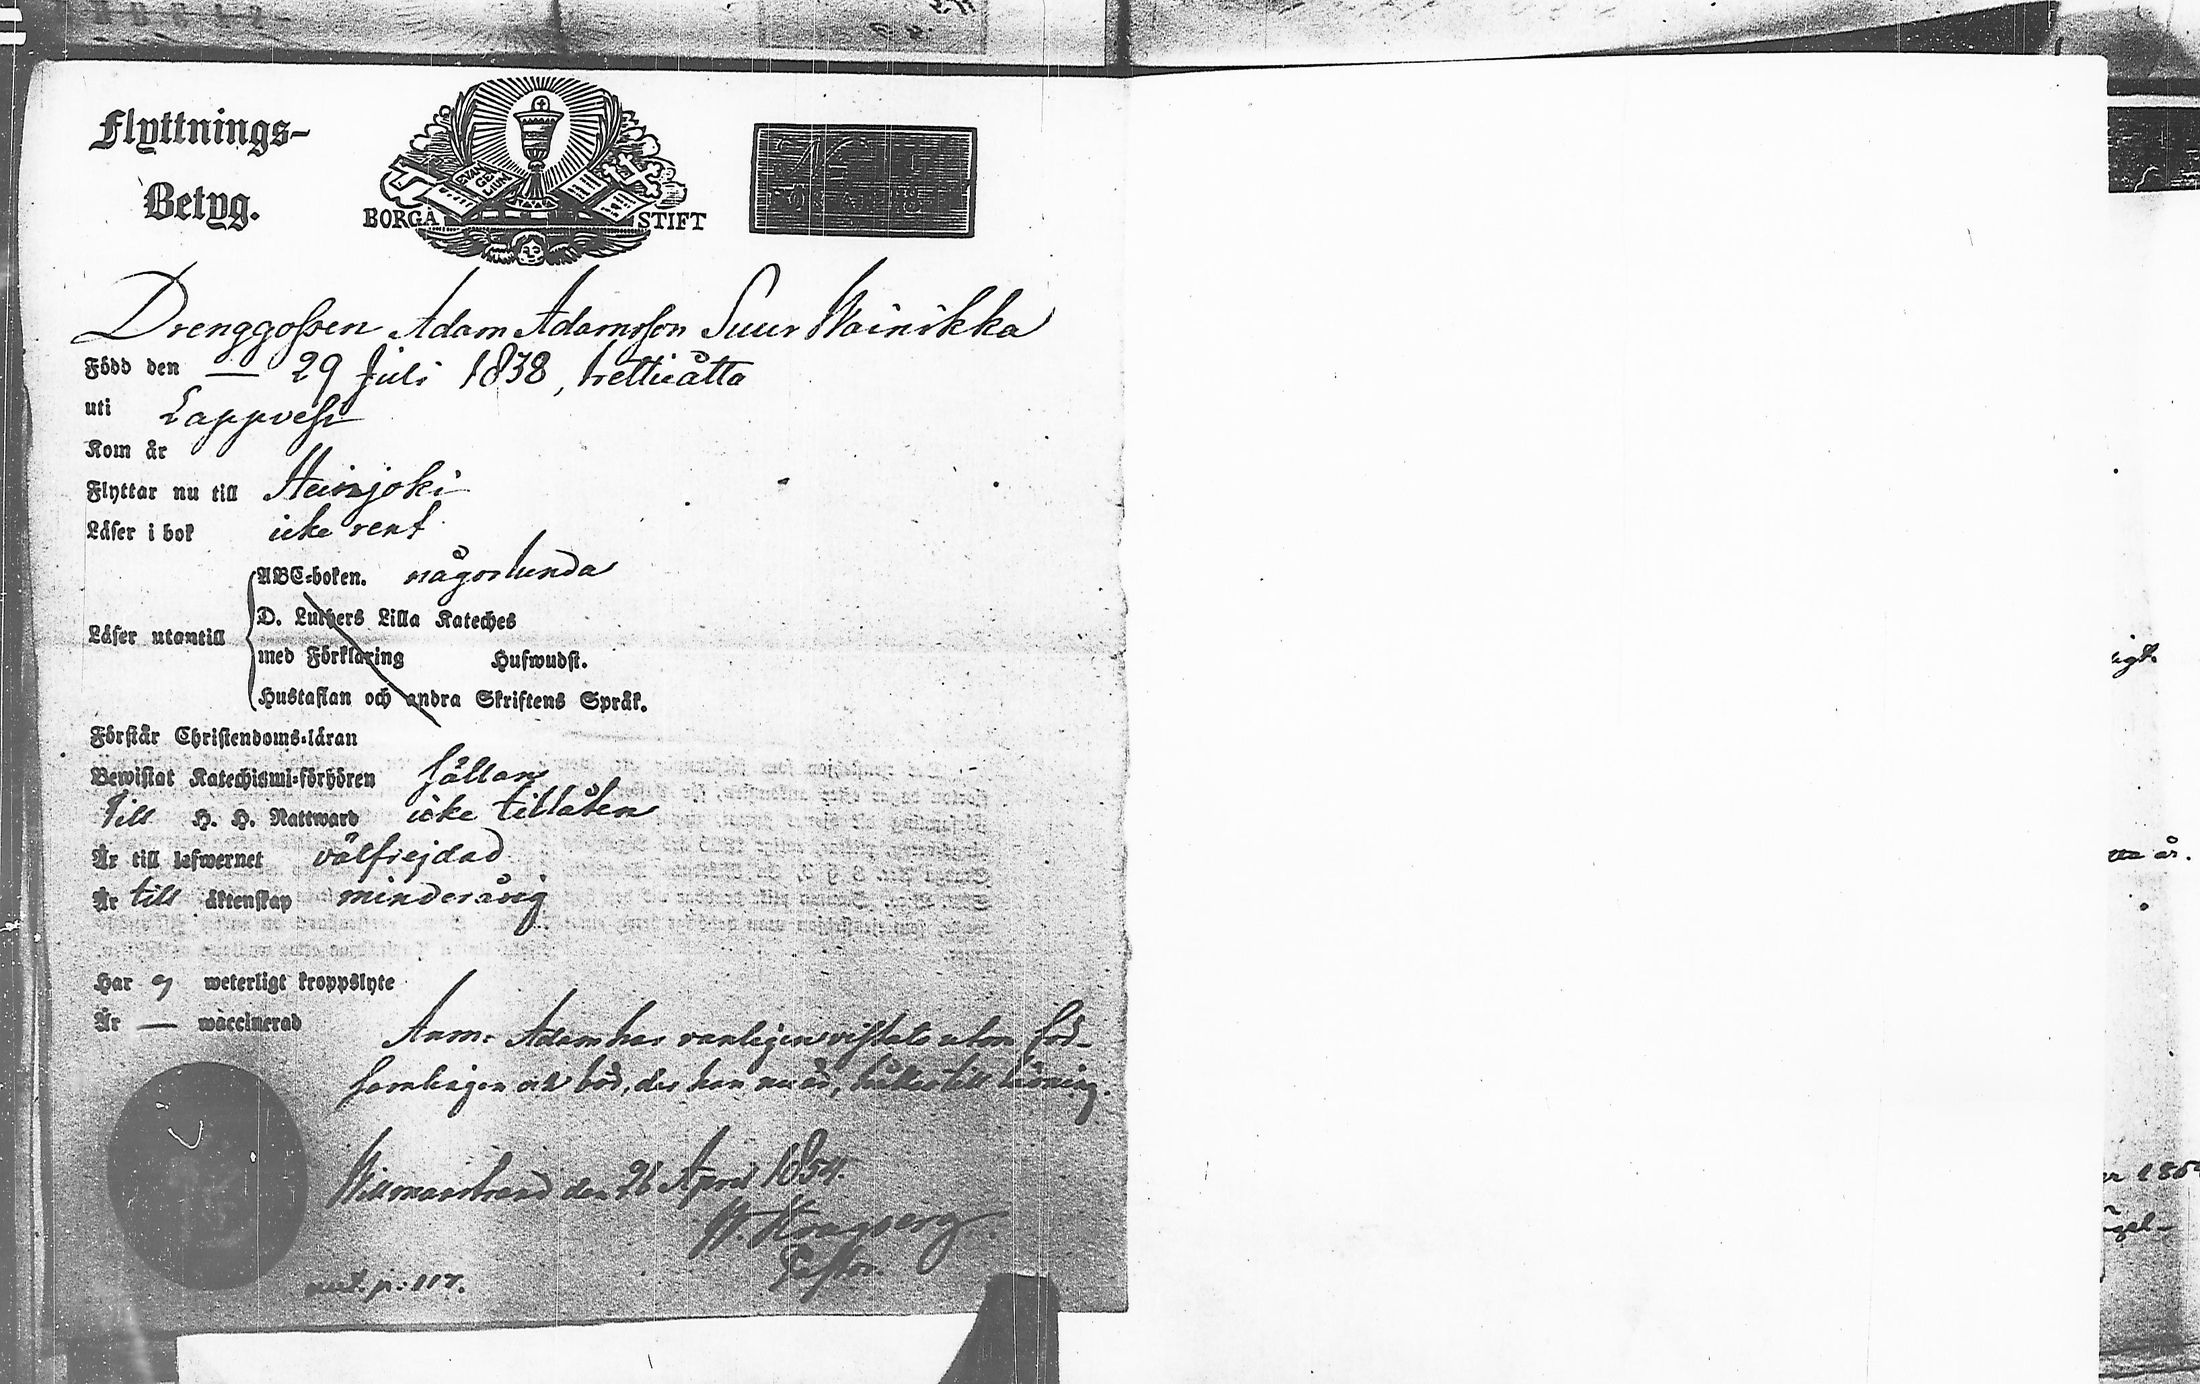 Flyttnings-
Betyg.
EVAN
GE
LIUM
BORGÅ STIFT
Drenggossen Adam Adamsson Suur Wainikka
Född den — 29 Juli 1838, trettiåtta
uti Lappvesi
Kom år
Flyttar nu till Heinjoki
Läser i bok icke rent
Läser utantill
ABC-boken. någorlunda
D. Luthers Lilla Kateches
med Förklaring Hufwudst.
Hustaflan och andra Skriftens Språk.
Förstår Christendoms-läran
Bewistat Katechismi-förhören sällan
Till H. H. Nattward icke tillåten
Är till lefwernet välfrejdad
Är till äktenskap minderårig
Har ej weterligt kroppslyte
Är — waccinerad
Anm: Adam har vanligen vistats utom för-
samlingen och bör, der han nu är, hållas till läsning.
Willmanstrand den 26 April 1854.
Pastor.
p: 117.